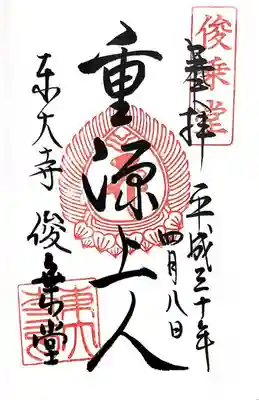 俊乗堂
奉拝
平成三十年
四月八日
重源上人
東大寺
俊乗堂